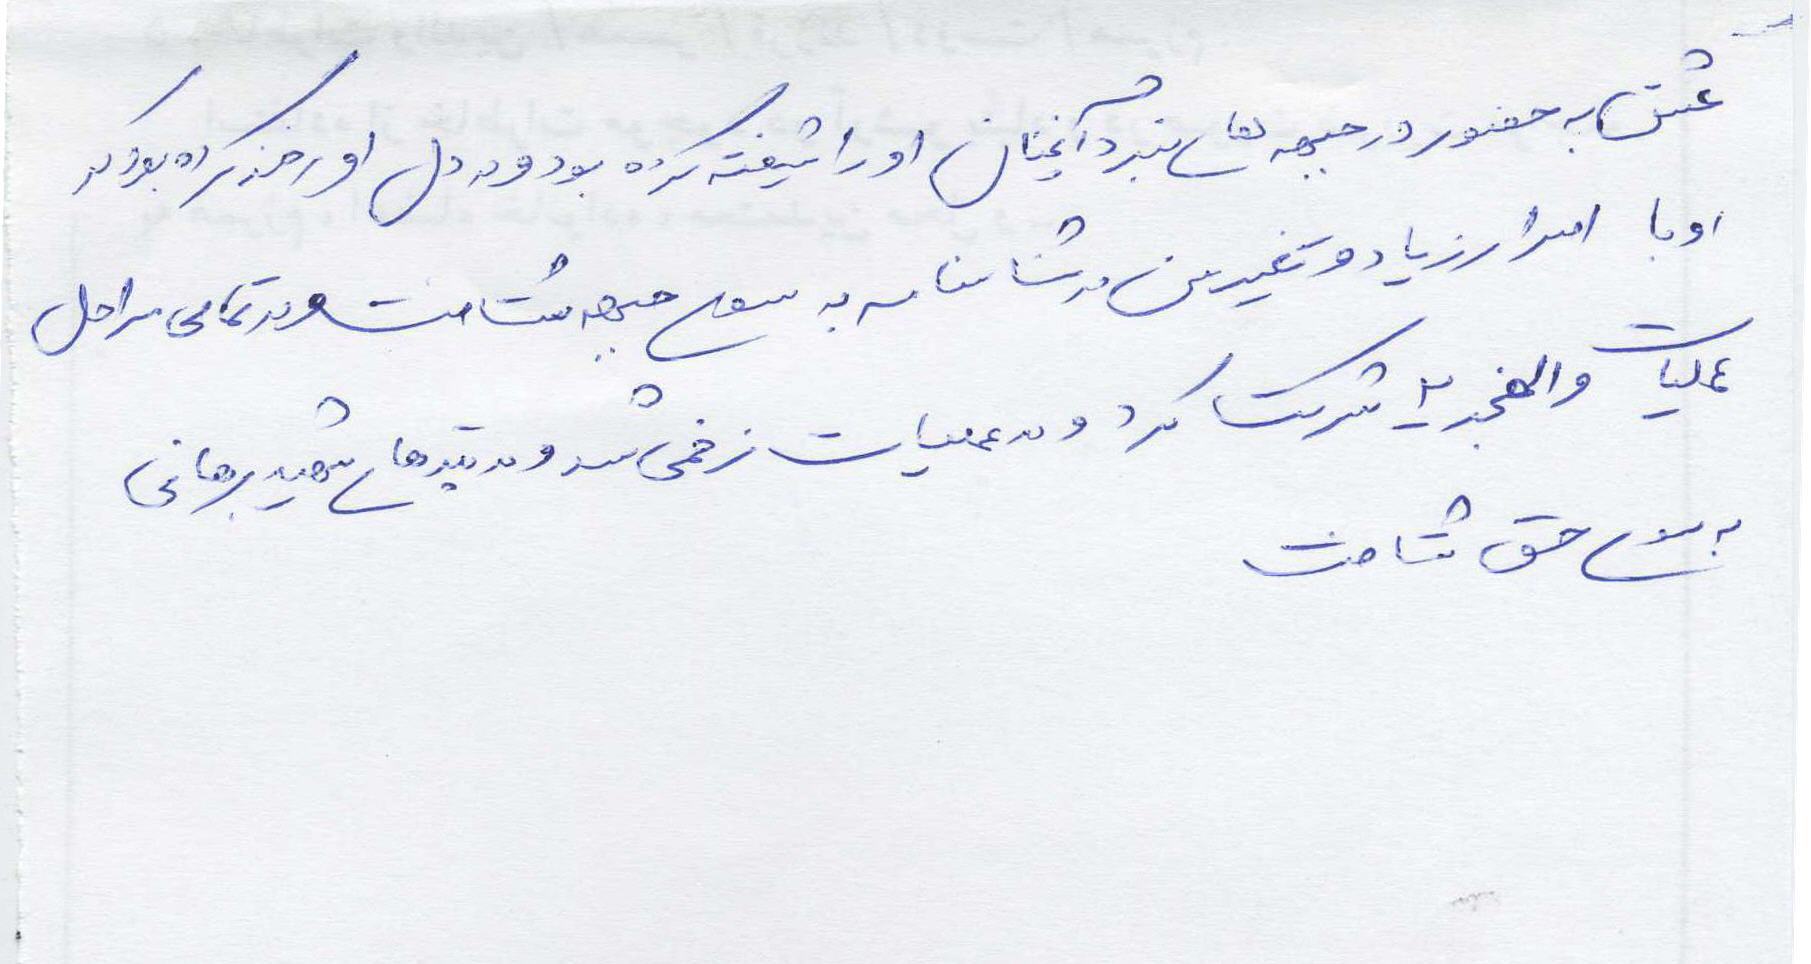 عشق به حضور در جبهه های نبرد آنچنان او را شیفته کرده بود و در دل او رخنه کرده بود که
او با اصرار زیاد و تغییر سن در شناسنامه به سوی جبهه شتافت و در تمامی مراحل
عملیات والفجر ۲ شرکت کرد و در عملیات زخمی شد و در تپه های شهید برهانی
به سوی حق شتافت